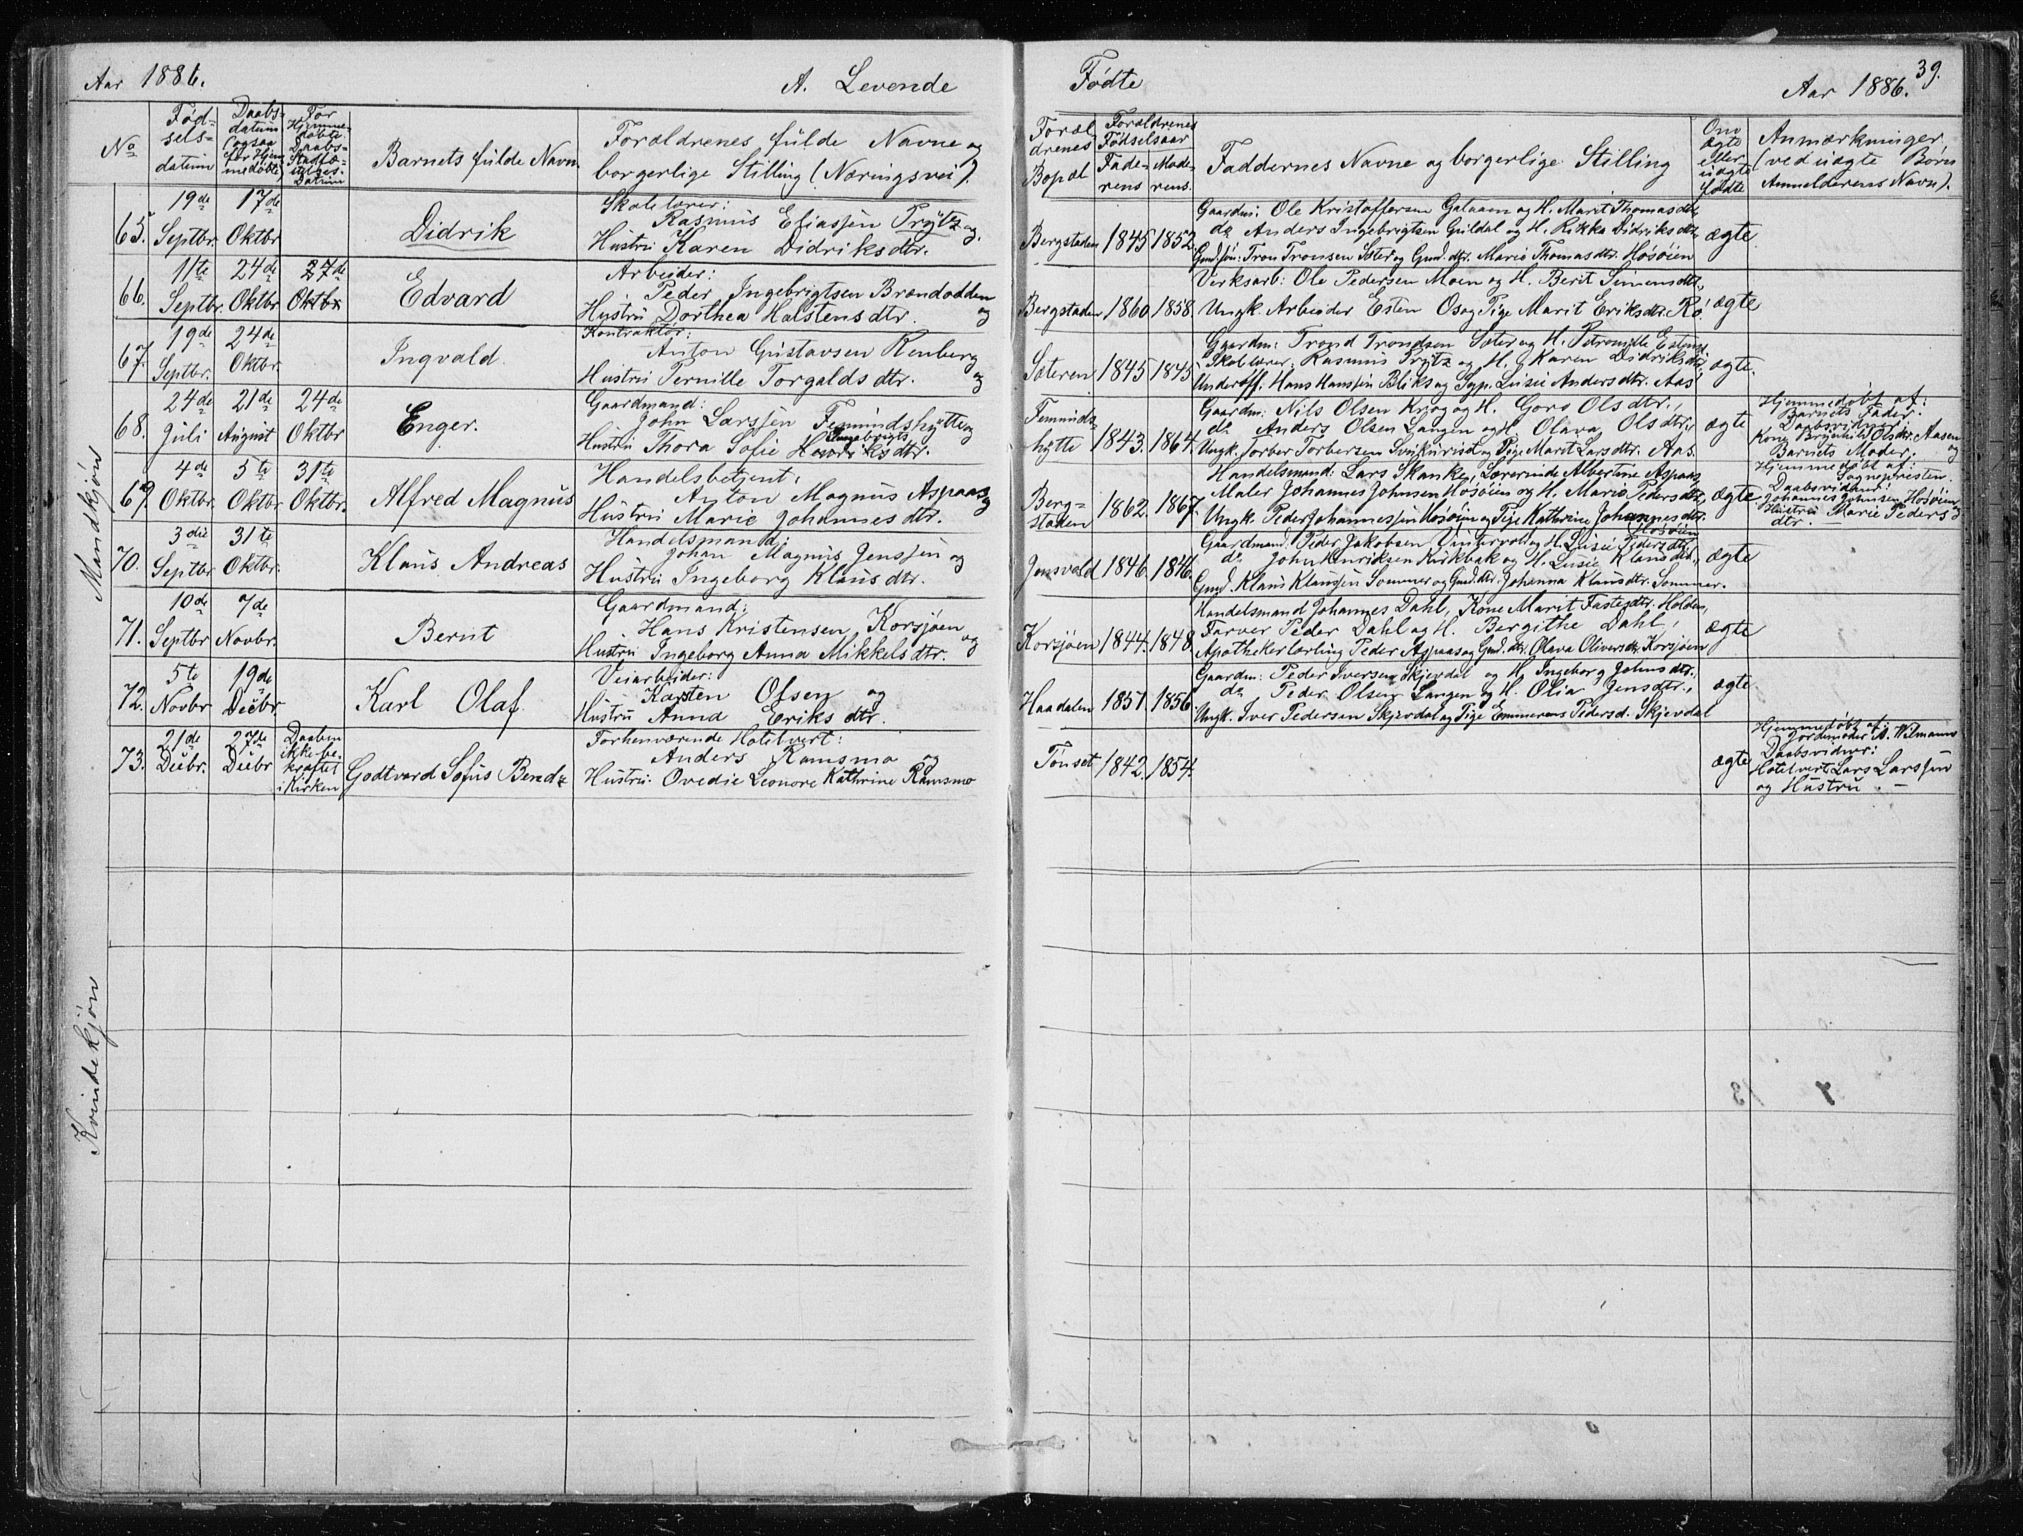 Aar 1886.
A. Levende
Fødte
Aar 1886.
39.
No
Fød-
sels-
datum
Daabs-
datum
(ogsaa
for Hjem-
medøbte)
For
Hjemme-
døbte
Daabs-
Stadfæ-
stelses-
Datum
Barnets fulde Navn.
Forældrenes fulde Navne og
borgerlige Stilling (Næringsvei).
Foræl-
drenes
Bopæl
Forældrenes
Fødselsaar
Fade-
rens
Mode-
rens.
Faddernes Navne og borgerlige Stilling
Om
ægte
eller
uægte
fødte
Anmærkninger
(ved uægte Børn
Anmelderens Navn).
Mandkjøn
65.
19de
Septbr.
17de
Oktbr
Didrik
Skolelærer:
Rasmus Eliassen Prytz og
Hustru Karen Didriksdtr.
Bergstaden
1845
1852
Gaardm: Ole Kristoffersen Galaaen og H. Marit Thomasdtr,
do Anders Ingebrigtsen Guldal og H. Rikka Didriksdtr
Gmdsøn: Tron Tronsen Sæter og Gmd.dtr. Marie Thomasdtr. Høsøien
ægte
66.
11te
Septbr.
24de
Oktbr
27de
Oktbr
Edvard
Arbeider:
Peder Ingebrigtsen Brændodden
og
Hustru Dorthea Halstensdtr.
Bergstaden
1860
1858.
Verksarb: Ole Pedersen Moen og H. Berit Simensdtr,
Ungk. Arbeider Esten Os og Pige Marit Eriksdtr. Rø
ægte
67.
19de
Septbr.
24de
Oktbr.
Ingvald.
Kontraktør:
Anton Gustavsen Renberg
og
Hustru Pernille Torgaldsdtr.
Sæteren
1845
1845
Gaardm: Trond Trondsen Sæter og H. Petronille Estens
Skolelærer: Rasmus Prytz og H. Karen Didriksdtr
Underoff: Hans Hanssen Bliks og Lusie Andersdtr. Aas
ægte.
68.
24de
Juli
21de
August
24de
Oktbr
Enger.
Gaardmand:
John Larssen Femundshytte og
Ingebrigts
Hustru Thora Sofie Henriksdtr.
Femunds-
hytte
1843.
1864.
Gaardm: Nils Olsen Krog og H. Goro Olsdtr.,
do Anders Olsen Langen og H. Olava Olsdtr,
Ungk. Torber Torbersen og Pige Marit Larsdtr. Aas.
ægte
Hjemmedøbt af:
Barnets Fader.
Daabsvidner:
Kone Brynhild Olsdtr. Aasen
og
Barnets Moder.
69.
4de
Oktbr.
5te
Oktbr.
31te
Oktbr.
Alfred Magnus
Handelsbetjent:
Anton Magnus Aspaas
og
Hustru Marie Johannesdtr.
Berg-
staden
1862.
1867.
Handelsmand: Lars Skanke, Lærerinde Albertine Aspaas,
Maler Johannes Johnsen Høsøien og H. Marie Pedersdtr,
Ungk. Peder Johannessen Høsøien og Pige Kathrine Johannesdtr.
Høsøien
ægte
Hjemmedøbt af:
Sognepresten.
Daabsvidner:
Johannes Johnsen Høsøien
og
Hustru Marie Peders
dtr. —
70.
3die
Septbr
31te
Oktbr.
Klaus Andreas
Handelsmand:
Johan Magnus Jenssen og
Hustru Ingeborg Klausdtr.
Jensvold
1846.
1846.
Gaardmand: Peder Jakobsen Vintervold og H. Lusie Pedersdtr
do John Henriksen Kirkbak og H. Lusie Klausdtr.,
Gmd. Klaus Klaussen Sommer og Gmd.dtr. Johanna Klausdtr. Sommer.
ægte
71.
10de
Septbr
7de
Novbr.
Bernt
Gaardmand:
Hans Kristensen Korsjøen
og
Hustru Ingeborg Anna Mikkelsdtr.
Korsjøen
1844.
1848.
Handelsmand Johannes Dahl, Kone Marit Fastesdtr. Holden,
Farver Peder Dahl og H. Bergithe Dahl,
Apothekerlærling Peder Aspaas og Gmd.dtr. Olava Oliversdtr. Korsjøen
ægte
72.
5te
Novbr
19de
Debr.
Karl Olaf
Veiarbeider:
Karsten Olsen og
Hustru Anna Eriksdtr.
Haadalen
1851.
1856.
Gaardm: Peder Iversen Skjevdal og H. Ingeborg Johnsdtr.
do Peder Olsen Langen og H. Olia Jensdtr.,
Ungk. Iver Pedersen Skjevdal og Pige Emmerens Pedersd. Skjevdal
ægte
73.
21de
Debr.
27de
Debr
Daaben
ikke be-
kræftet
i Kirken
Godtvard Sofus Bend-
Forhenværende Hotelvert:
Anders Ramsmo og
Hustru: Ovedie Leonore Kathrine Ramsmo
Tönset
1842.
1854.
ægte
Hjemmedøbt af:
Jordemoder A. Wilmann
Daabsvidner:
Hotelvert Lars Larssen
og Hustru. —
Kvindekjøn